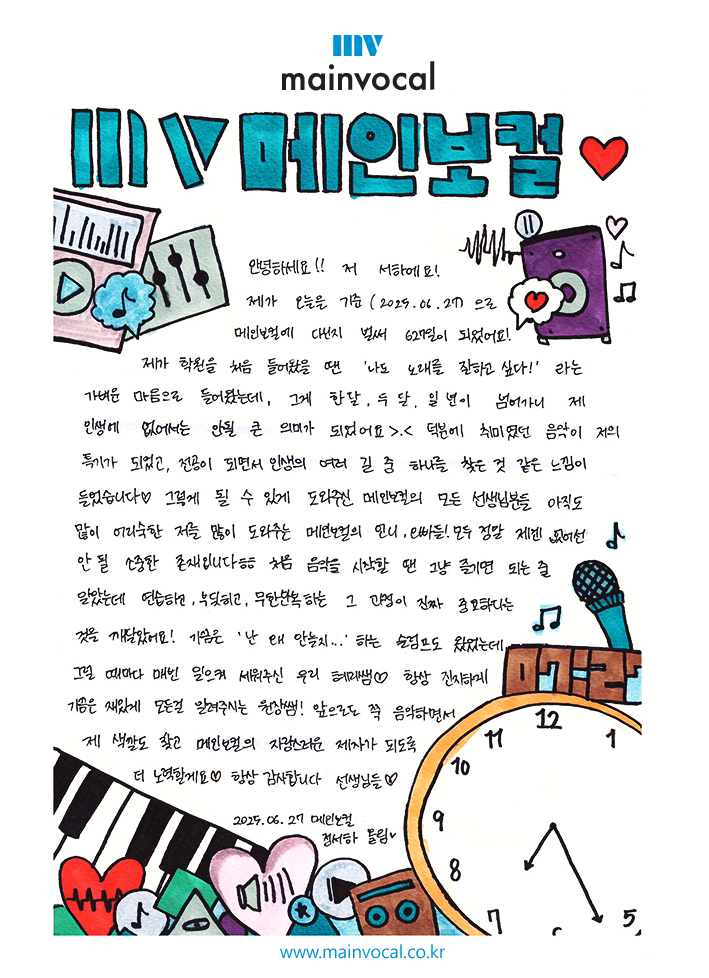 mv
mainvocal
mv 메인보컬
안녕하세요!! 저 서하예요!
제가 오늘은 기준 (2025.06.27) 으로
메인보컬에 다닌지 벌써 627일이 되었어요!
제가 학원을 처음 들어왔을 땐 '나도 노래를 잘하고싶다!' 라는
가벼운 마음으로 들어왔는데, 그게 한달, 두 달, 일 년이 넘어가니 제
인생에 없어서는 안될 큰 의미가 되었어요>.< 덕분에 취미였던 음악이 저의
특기가 되었고, 전공이 되면서 인생의 여러 길 중 하나를 찾은 것 같은 느낌이
들었습니다♡ 그렇게 될 수 있게 도와주신 메인보컬의 모든 선생님분들 아직도
많이 어리숙한 저를 많이 도와주는 메인보컬의 언니, 오빠들! 모두 정말 제겐 없어선
안 될 소중한 존재입니다ㅎㅎ 처음 음악을 시작할 땐 그냥 즐기면 되는 줄
알았는데 연습하고, 부딪히고, 무한반복하는 그 과정이 진짜 중요하다는
것을 깨달았어요! 가끔은 '난 왜 안늘지...' 하는 슬럼프도 왔었는데
그럴 때마다 매번 일으켜 세워주신 우리 혜미쌤♡ 항상 진지하게
가끔은 재밌게 모든걸 알려주시는 원장쌤! 앞으로도 쭉 음악하면서
제 색깔도 찾고 메인보컬의 자랑스러운 제자가 되도록
더 노력할게요♡ 항상 감사합니다 선생님들♡
2025.06.27 메인보컬
전서하 올림♥
12
11
1
10
9
8
7
6
5
www.mainvocal.co.kr